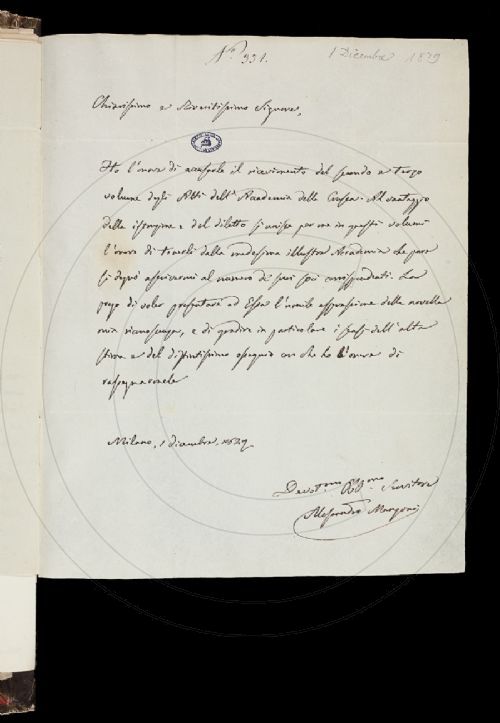 N.° 991.
1 Dicembre 1829
Chiarissimo e Riveritissimo Signore,
Ho l'onore di accusarle il ricevimento del secondo e terzo
volume degli Atti dell'Accademia della Crusca. Al vantaggio
della istruzione e del diletto si unisce per me in questi volumi
l'onore di tenerli dalla medesima illustre Accademia che pure
si degnò ascrivermi al numero de' suoi soci corrispondenti. La
prego di voler presentare ad Essa l'umile espressione della novella
mia riconoscenza, e di gradire in particolare i sensi dell'alta
stima e del distintissimo ossequio con che ho l'onore di
rassegnarmele
Milano, 1 dicembre, 1829.
Devot.mo Obb.mo Servitore
Alessandro Manzoni